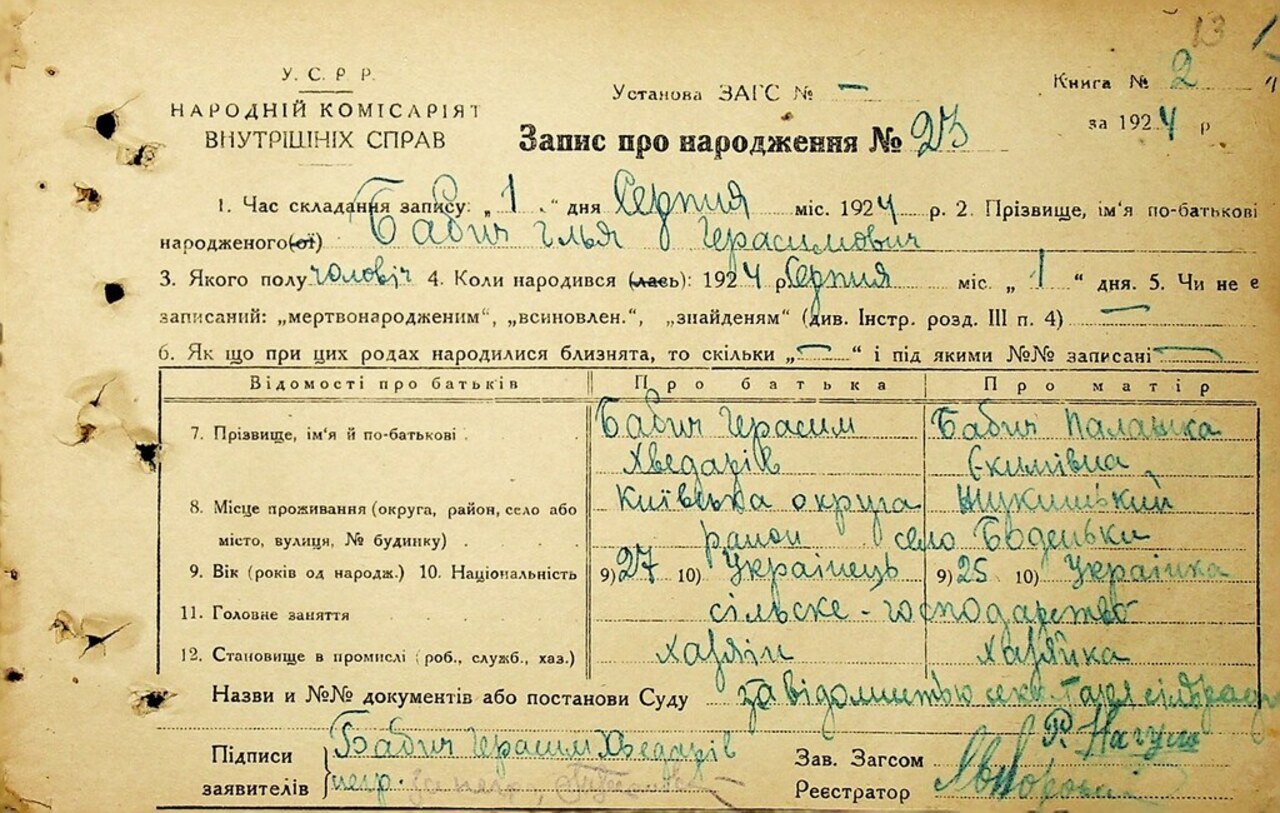 13
У. С. Р. Р.
НАРОДНІЙ КОМІСАРІЯТ
ВНУТРІШНІХ СПРАВ
Установа ЗАГС № —
Книга № 2
за 1924 р
Запис про народження № 23
1. Час складання запису: „1" дня Серпня міс. 1924 р. 2. Прізвище, ім'я по-батькові
народженого(ої) Бабич Ілья Герасимович
3. Якого полу чоловіч 4. Коли народився (лась): 1924 р. Серпня міс. „1" дня. 5. Чи не є
записаний: „мертвонародженим", „всиновлен.", „знайденям" (див. Інстр. розд. III п. 4) —
6. Як що при цих родах народилися близнята, то скільки „—" і під якими №№ записані —
Відомості про батьків Про батька Про матір
7. Прізвище, ім'я й по-батькові Бабич Герасим Бабич Палашка
Хведарів Єкимівна
8. Місце проживання (округа, район, село або Київська округа Жукинський
місто, вулиця, № будинку) район село Боденьки
9. Вік (років од народж.) 10. Національність 9) 27 10) Українець 9) 25 10) Українка
11. Головне заняття сільске-господарство
12. Становище в промислі (роб., служб., хаз.) хазяін хазяйка
Назви и №№ документів або постанови Суду за відомистью
Підписи заявителів Бабич Герасим Хведарів
негр. за него,
Зав. Загсом Р. Нагула
Реєстратор